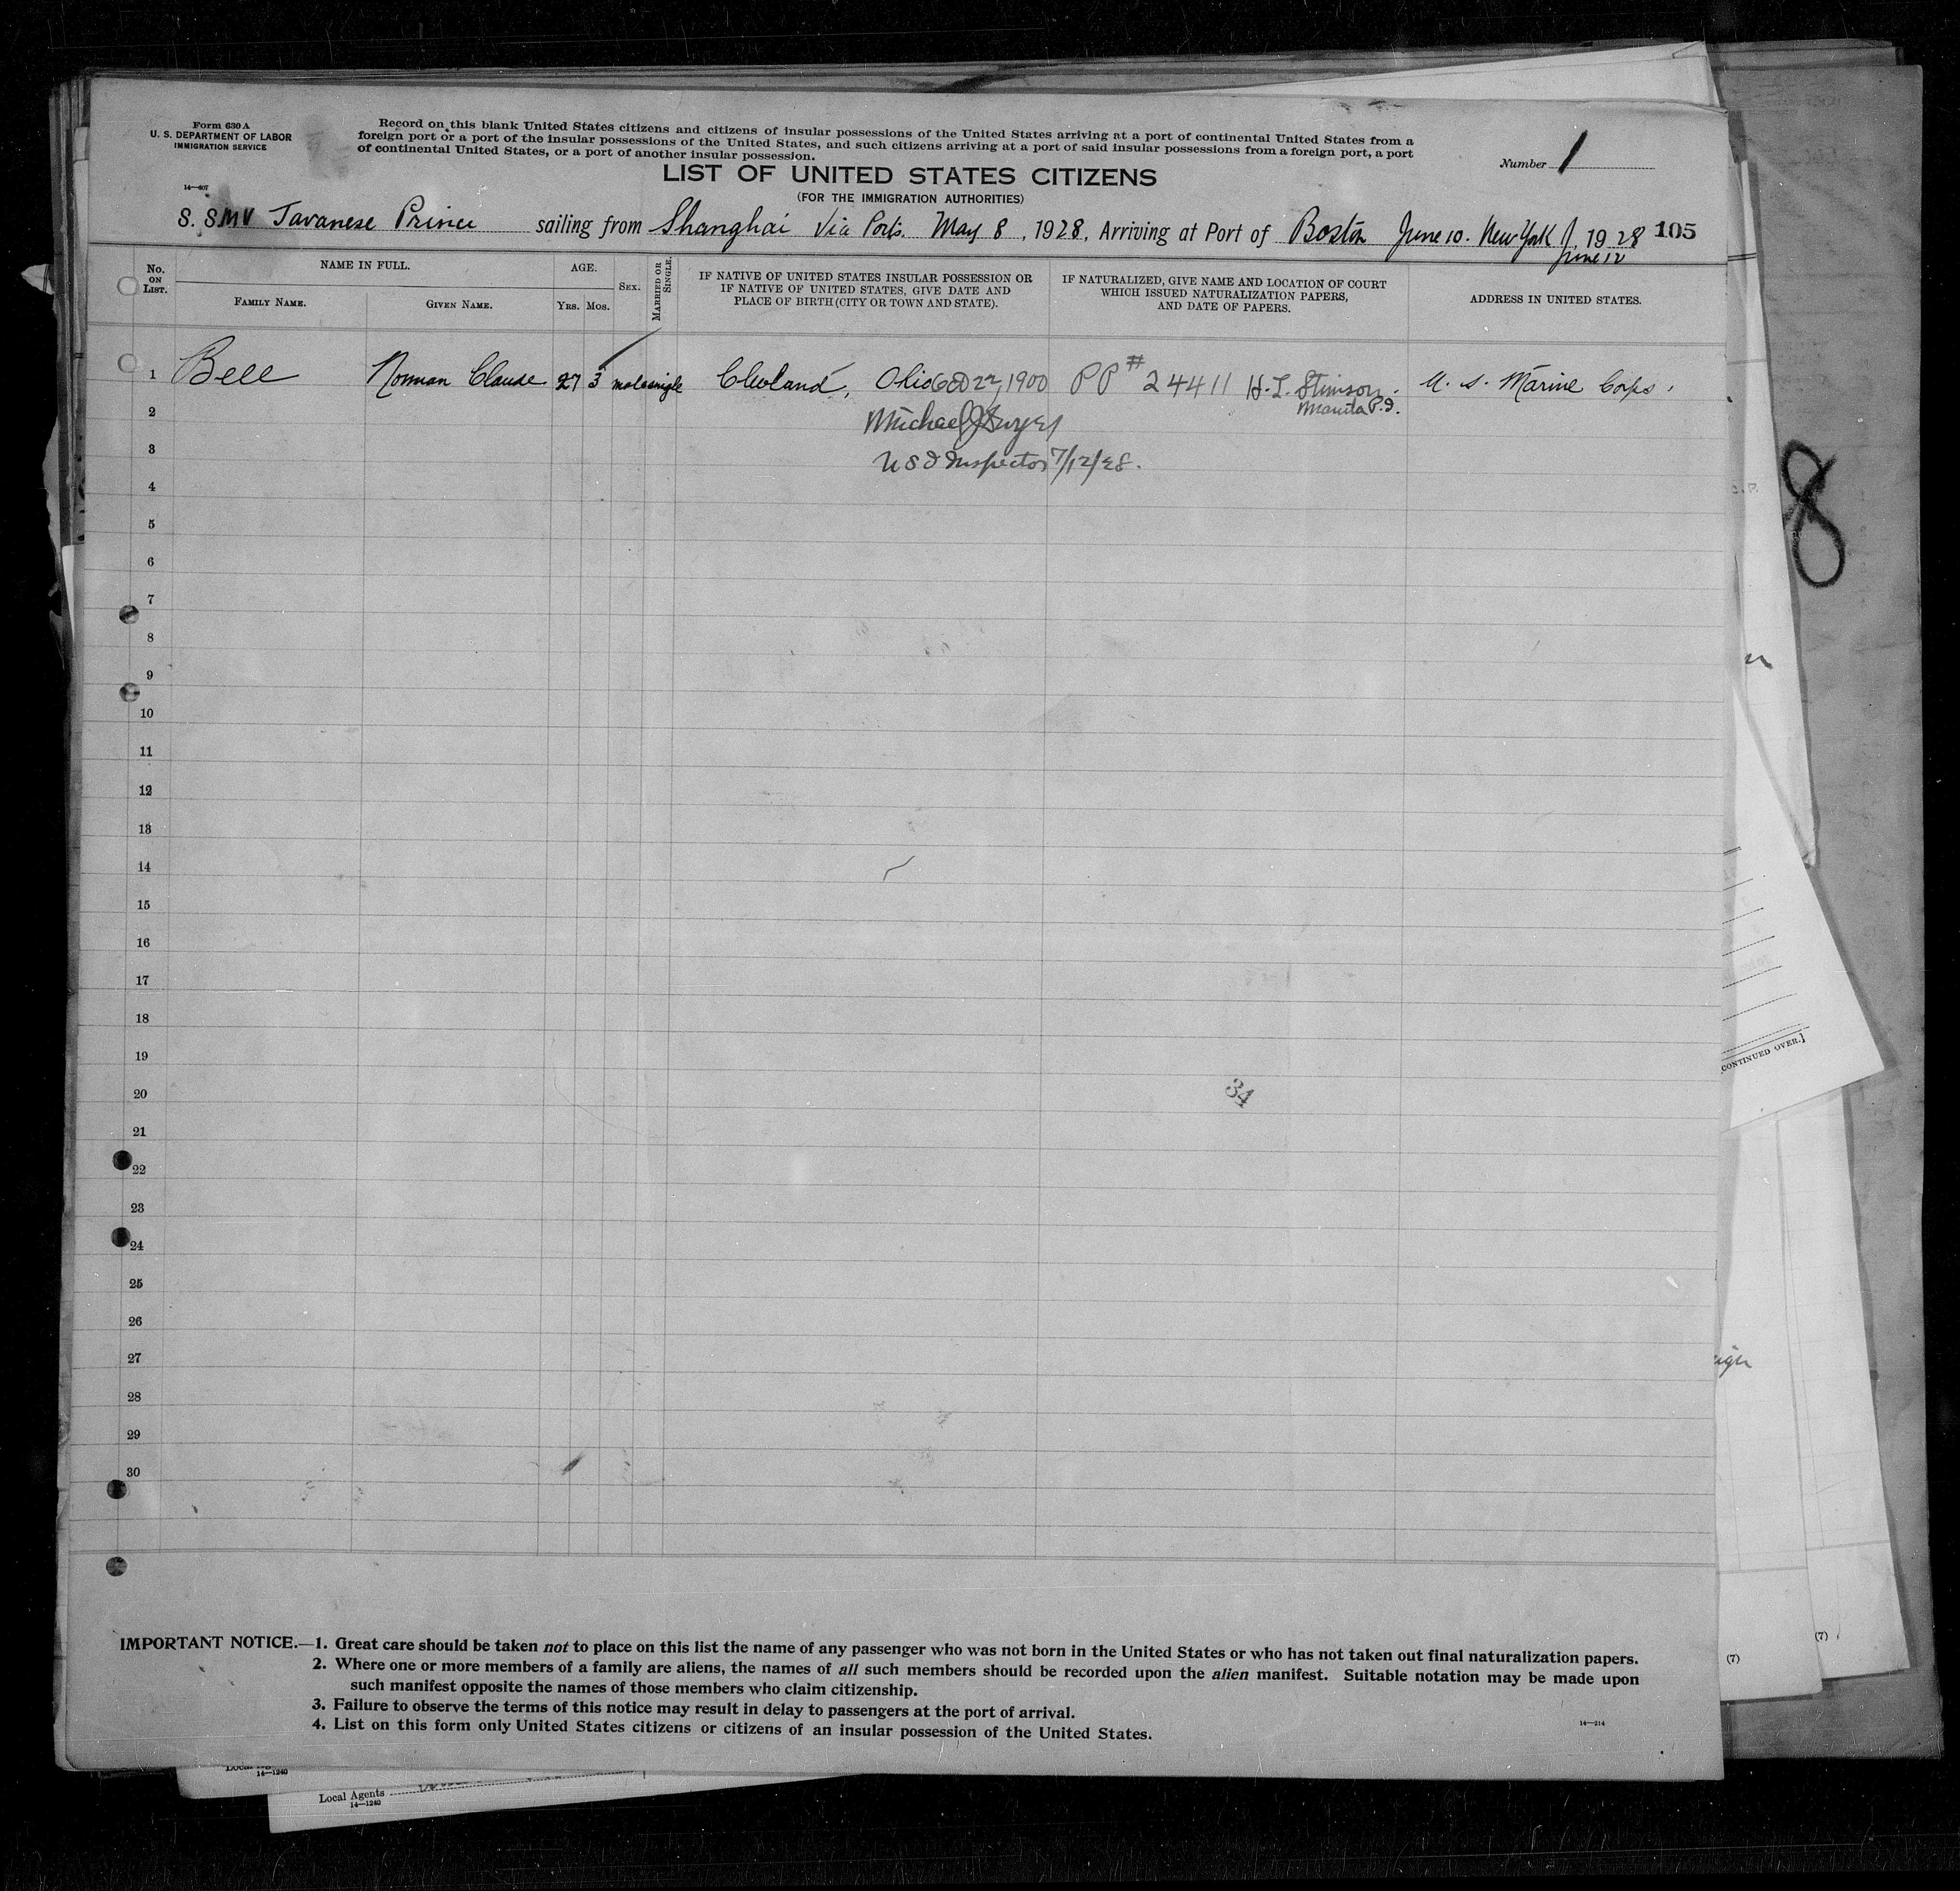 Form 630 A
U. S. DEPARTMENT OF LABOR
IMMIGRATION SERVICE
14—607
Record on this blank United States citizens and citizens of insular possessions of the United States arriving at a port of continental United States from a
foreign port or a port of the insular possessions of the United States, and such citizens arriving at a port of said insular possessions from a foreign port, a port
of continental United States, or a port of another insular possession.
Number 1
LIST OF UNITED STATES CITIZENS
(FOR THE IMMIGRATION AUTHORITIES)
S. S. MV Javanese Prince sailing from Shanghai Via Ports. May 8, 1928, Arriving at Port of Boston June 10. New York, 1928 105
June 12
No. ON LIST.
NAME IN FULL.
FAMILY NAME.
GIVEN NAME.
AGE.
YRS. MOS.
SEX.
MARRIED OR SINGLE.
IF NATIVE OF UNITED STATES INSULAR POSSESSION OR
IF NATIVE OF UNITED STATES, GIVE DATE AND
PLACE OF BIRTH (CITY OR TOWN AND STATE).
IF NATURALIZED, GIVE NAME AND LOCATION OF COURT
WHICH ISSUED NATURALIZATION PAPERS,
AND DATE OF PAPERS.
ADDRESS IN UNITED STATES.
1 Bell Norman Claude 27 3 male single Cleveland, Ohio 22, 1900 PP # 24411 H. L. Stimson. U. S. Marine Corps.
Manila P.I.
2 Michael J
3 USI Inspector 7/12/28.
4
5
6
7
8
9
10
11
12
13
14
15
16
17
18
19
20
34
21
22
23
24
25
26
27
28
29
30
IMPORTANT NOTICE.—1. Great care should be taken not to place on this list the name of any passenger who was not born in the United States or who has not taken out final naturalization papers.
2. Where one or more members of a family are aliens, the names of all such members should be recorded upon the alien manifest. Suitable notation may be made upon
such manifest opposite the names of those members who claim citizenship.
3. Failure to observe the terms of this notice may result in delay to passengers at the port of arrival.
4. List on this form only United States citizens or citizens of an insular possession of the United States.
14—214
8
CONTINUED OVER.]
(7)
(7)
14—1240
Local Agents
14—1240